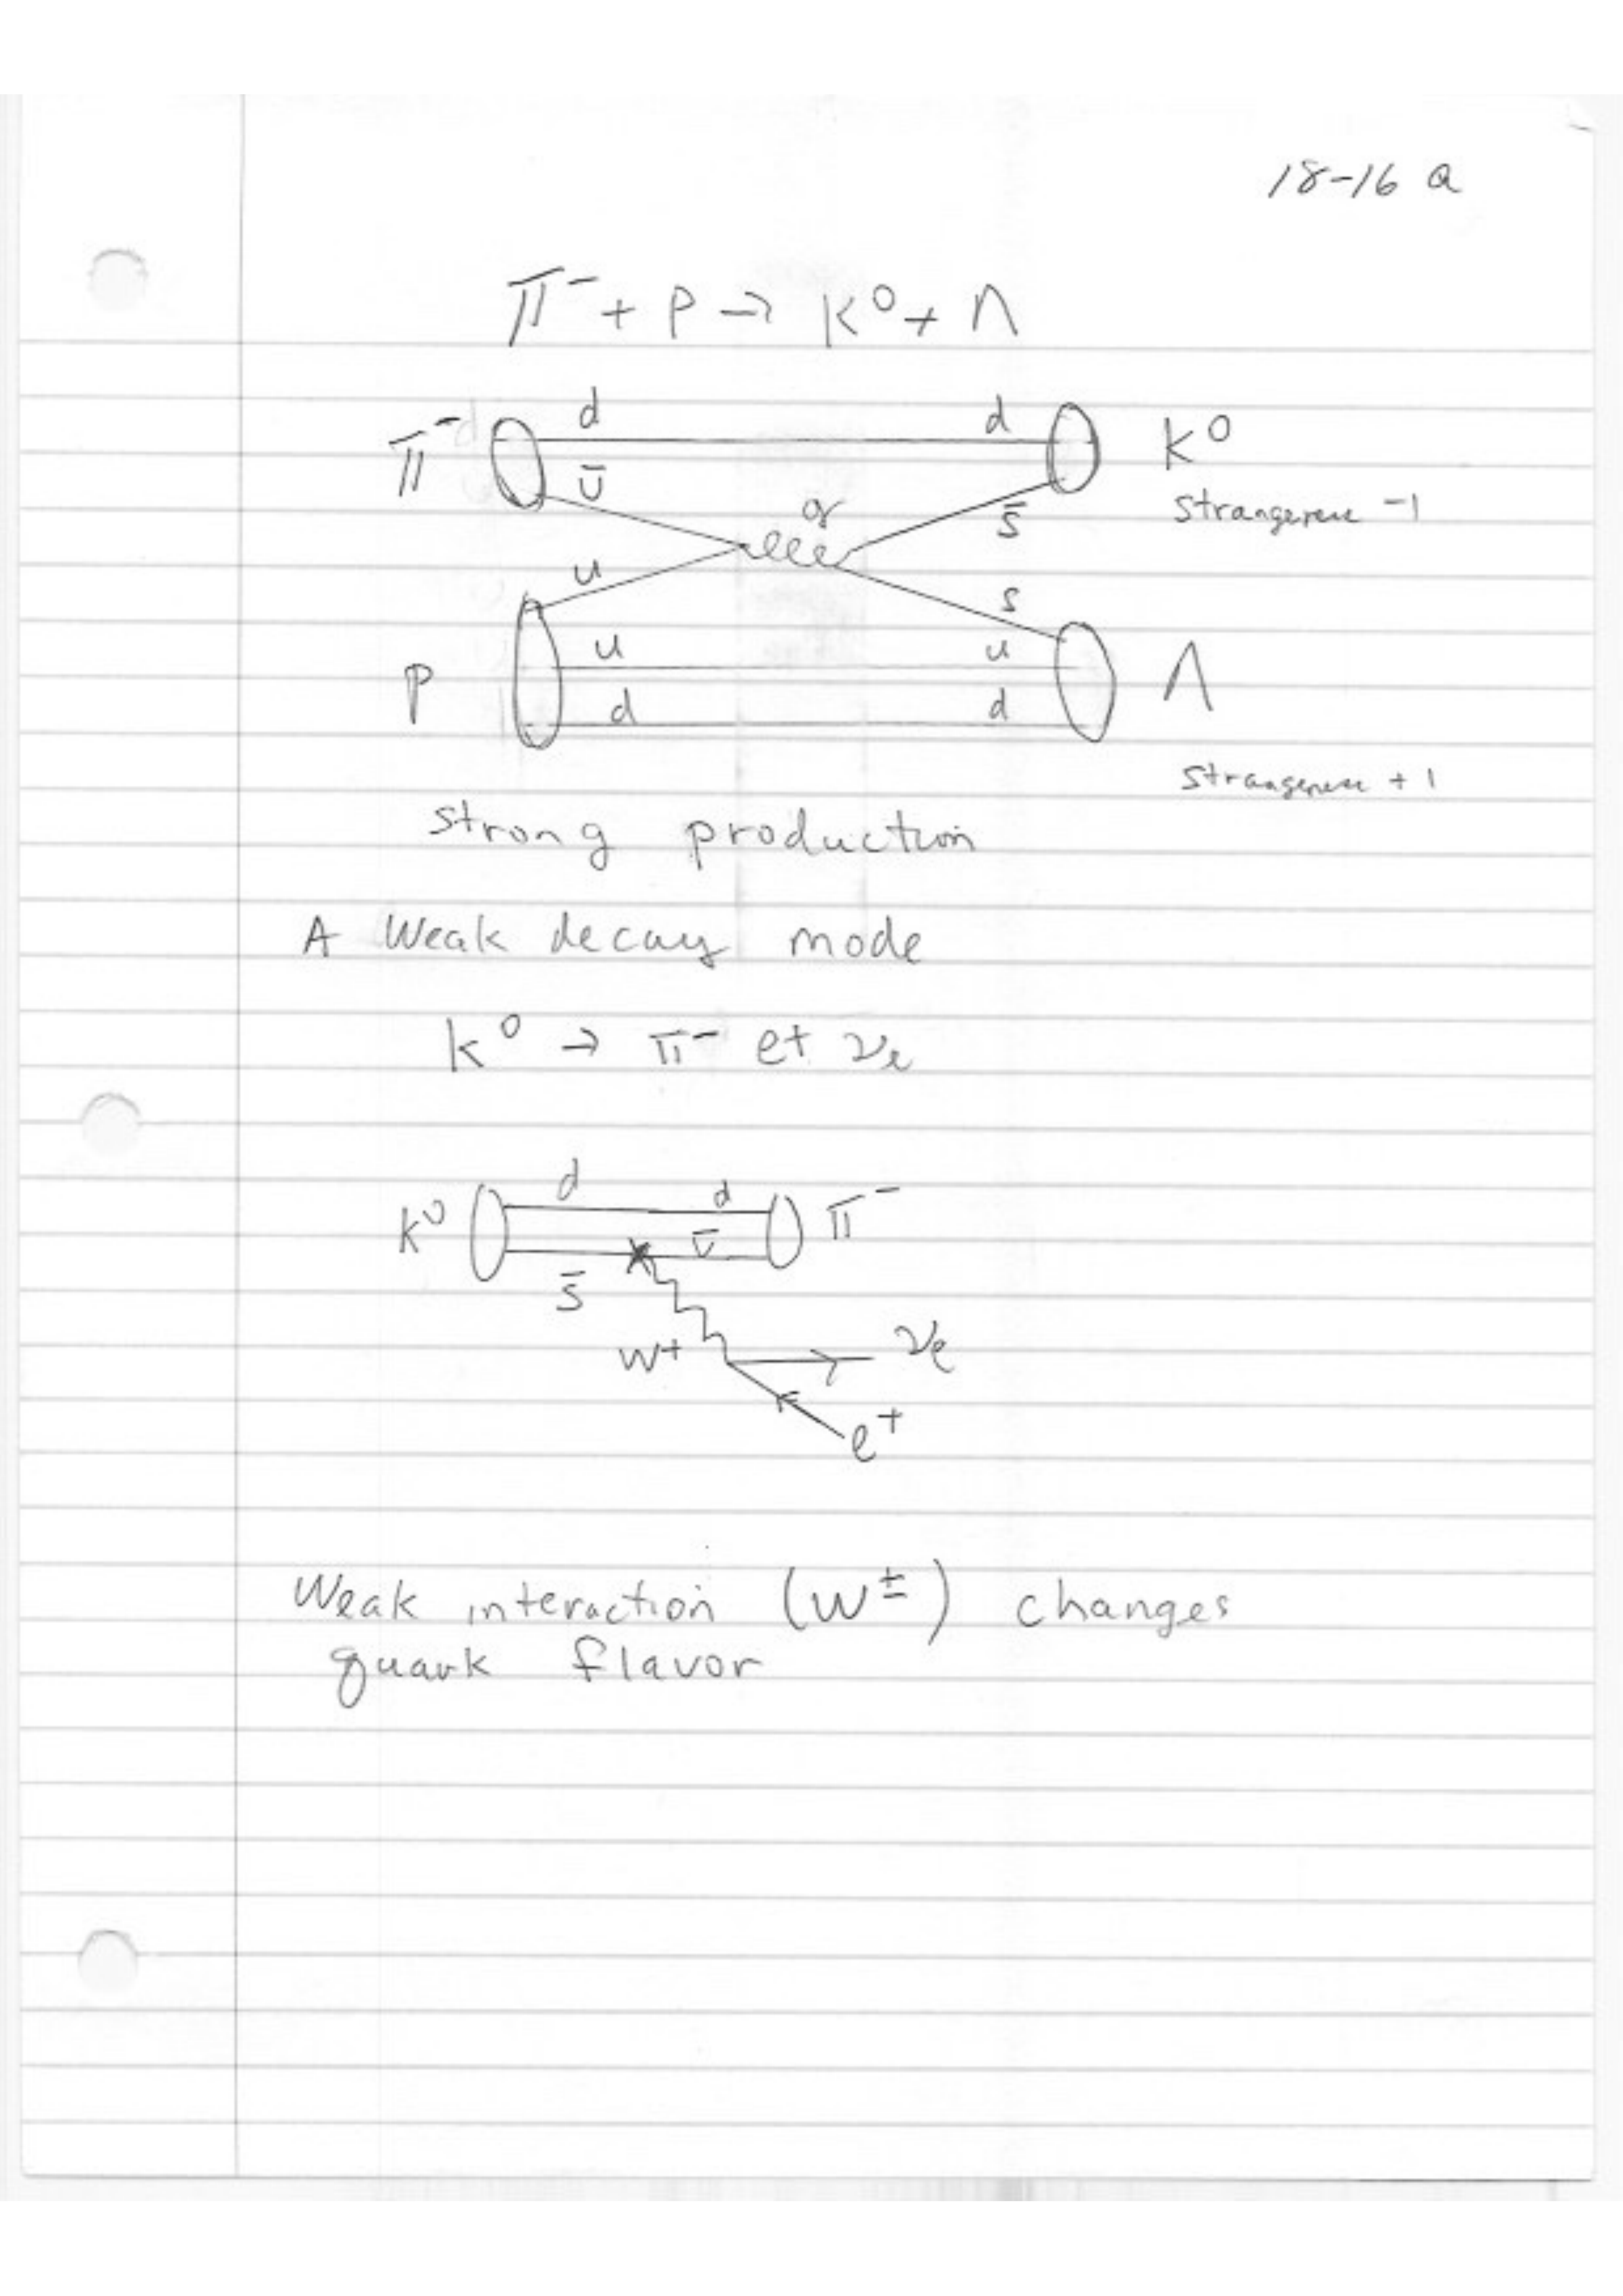 18-16 a
π⁻ + p → K⁰ + Λ
d d
π⁻ K⁰
ū
g s̄ Strangeness -1
u s
u u
p Λ
d d
Strangeness + 1
strong production
A Weak decay mode
K⁰ → π⁻ e+ νe
d d
K⁰ ū π⁻
s̄
W+ νe
e+
Weak interaction (W±) changes
quark flavor